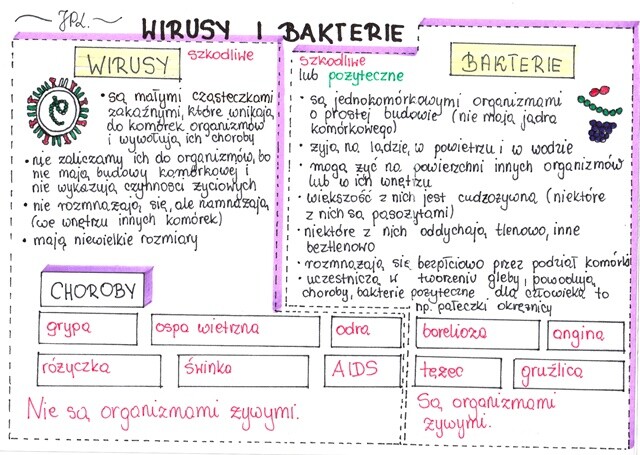 JPL.
WIRUSY I BAKTERIE
WIRUSY
szkodliwe
• są małymi cząsteczkami
zakaźnymi, które wnikają
do komórek organizmów
i wywołują ich choroby
• nie zaliczamy ich do organizmów, bo
nie mają budowy komórkowej i
nie wykazują czynności życiowych
• nie rozmnażają się, ale namnażają
(we wnętrzu innych komórek)
• mają niewielkie rozmiary
szkodliwe
lub pożyteczne
BAKTERIE
• są jednokomórkowymi organizmami
o prostej budowie (nie mają jądra
komórkowego)
• żyją na lądzie, w powietrzu i w wodzie
• mogą żyć na powierzchni innych organizmów
lub w ich wnętrzu
• większość z nich jest cudzożywna (niektóre
z nich są pasożytami)
• niektóre z nich oddychają tlenowo, inne
beztlenowo
• rozmnażają się bezpłciowo przez podział komórki
• uczestniczą w tworzeniu gleby, powodują
choroby, bakterie pożyteczne dla człowieka to
np. pałeczki okrężnicy
CHOROBY
grypa
ospa wietrzna
odra
różyczka
świnka
AIDS
Nie są organizmami żywymi.
borelioza
angina
tężec
gruźlica
Są organizmami
żywymi.